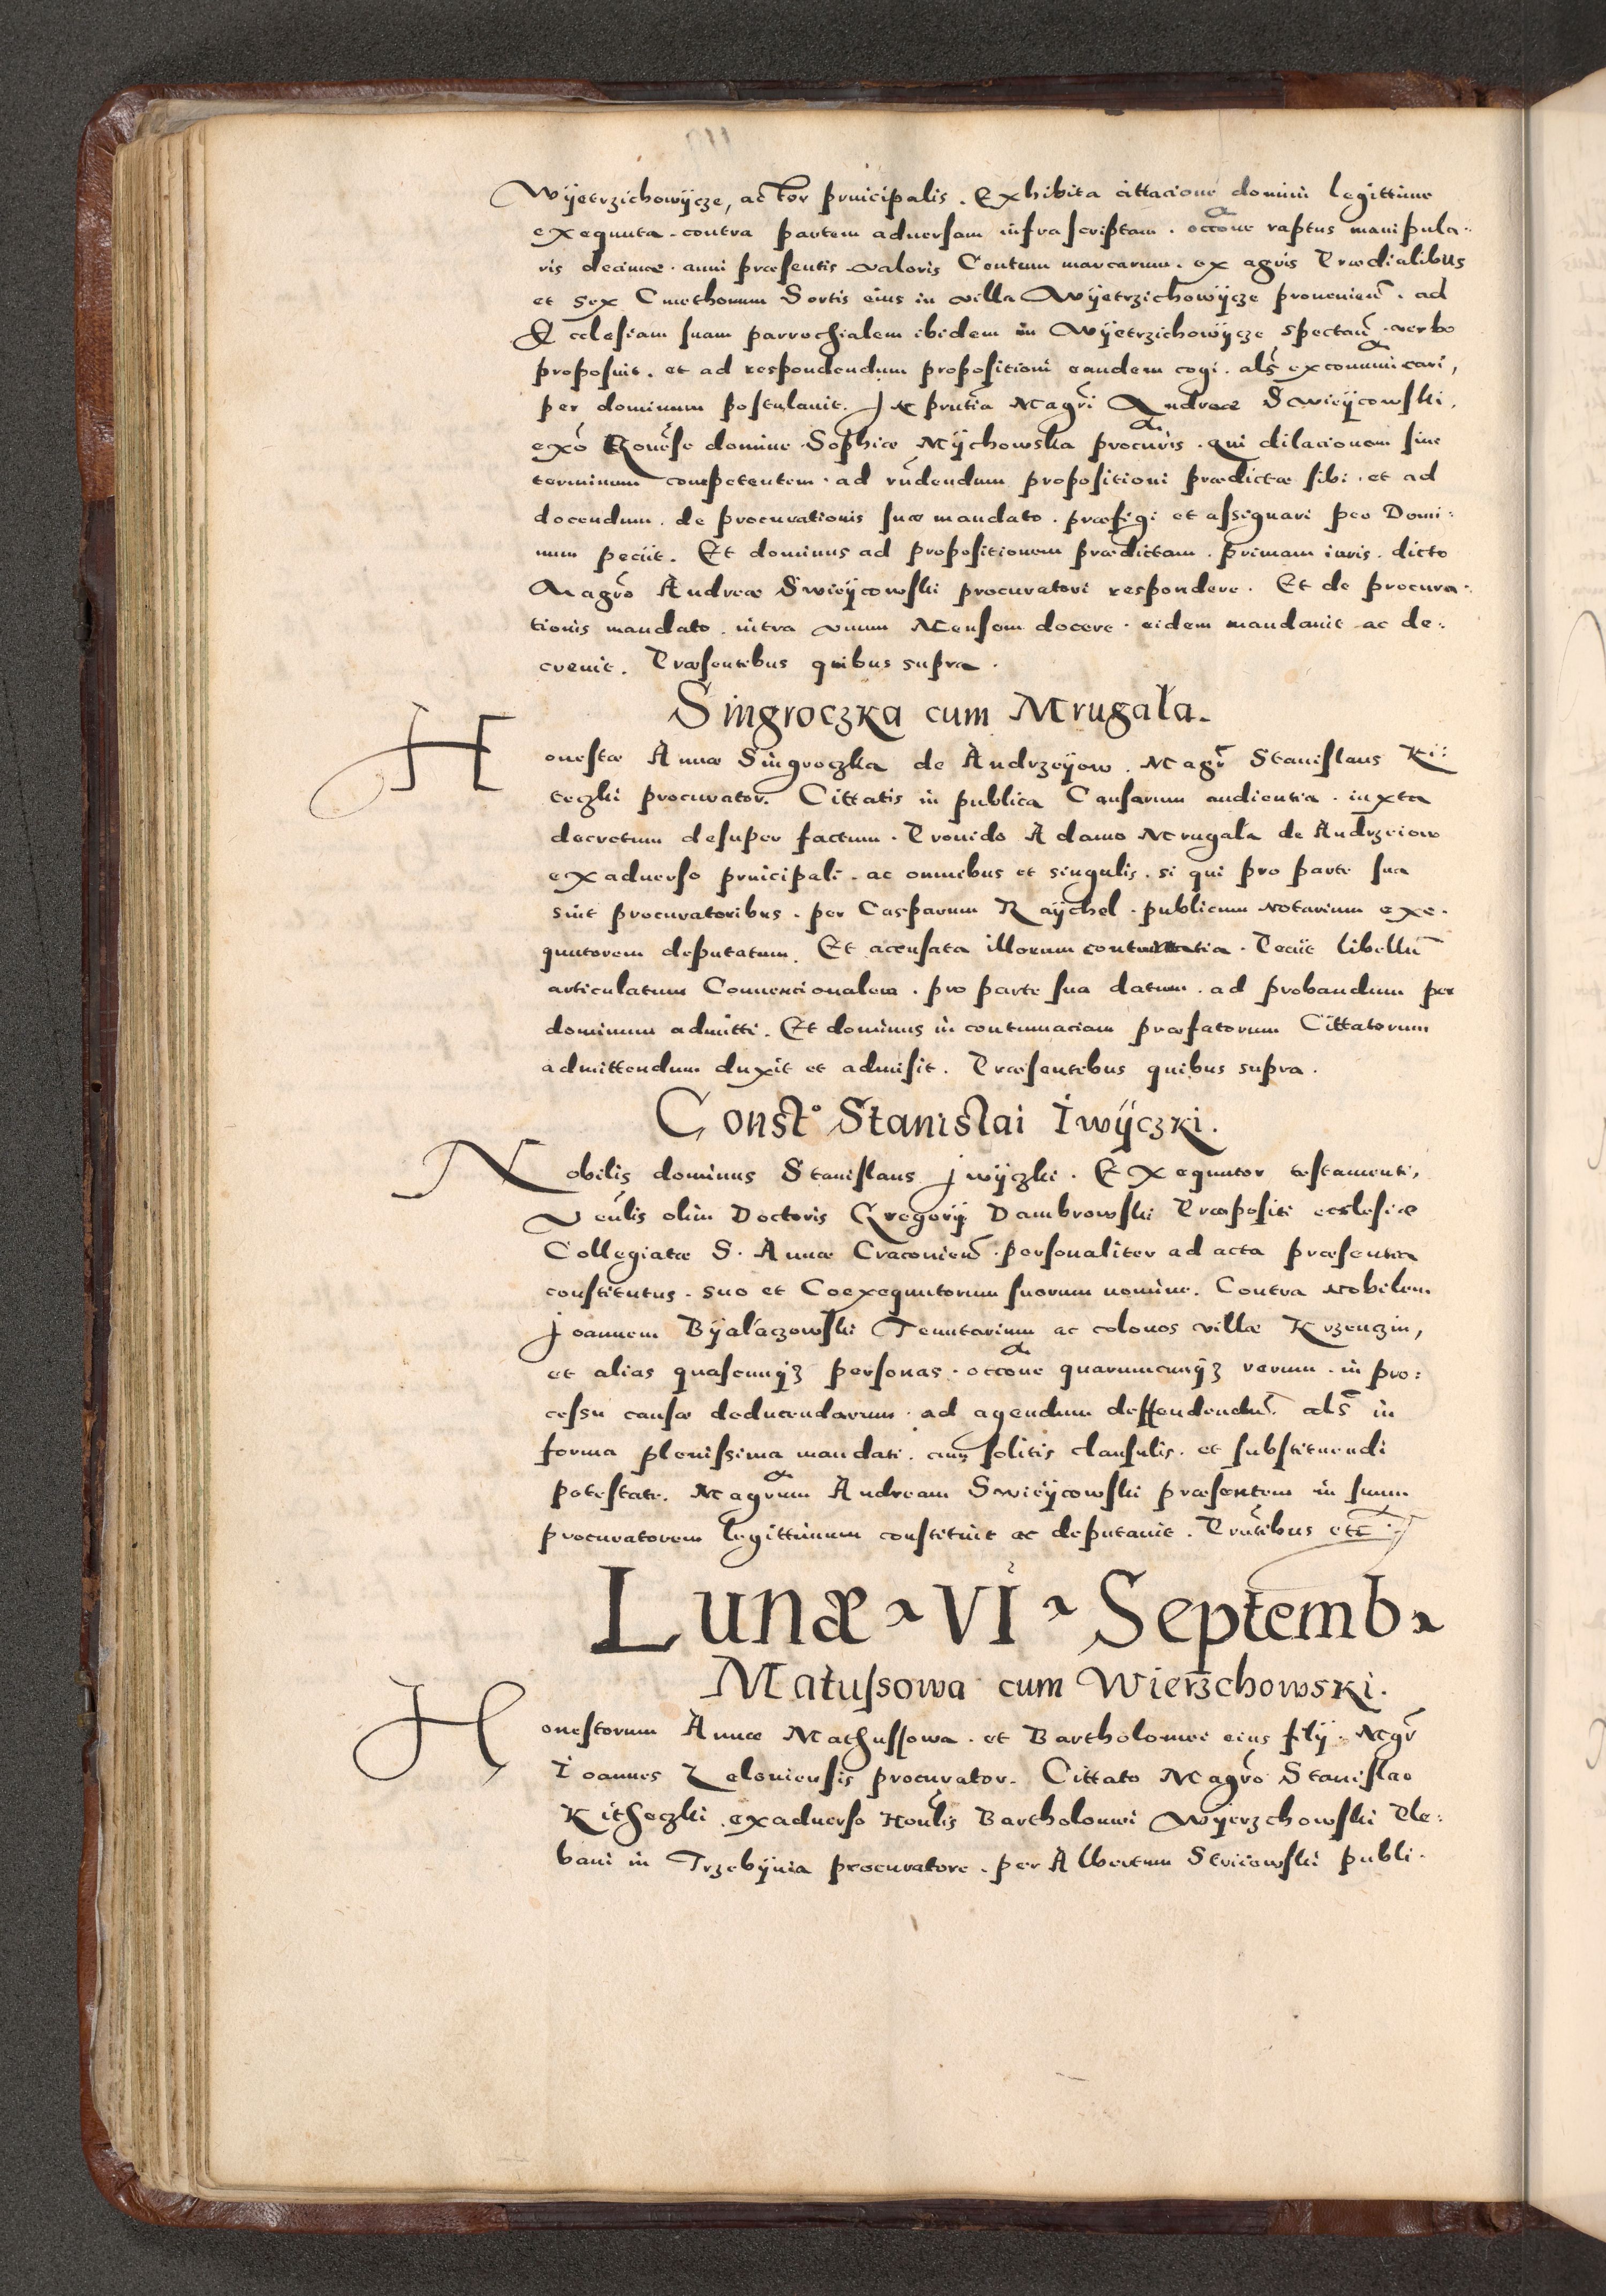 Wÿetrzichowÿcze, actor principalis. Exhibita cittacione domini legittime
exequuta. contra partem aduersam infrascriptam. occōne raptus manipula-
ris decimæ. anni præsentis valoris Centum marcarum. ex agris Prædialibus
et sex Cmethonum Sortis eius in villa Wÿetrzichowÿcze prouenien̄. ad
Ecclesiam suam parrochialem ibidem in Wÿetrzichowÿcze spectan̄. verbo
proposuit. et ad respondendum propositioni eandem cogi. als̄ excommunicari,
per dominum postulauit. In prn̄tia Magr̄i Andreæ Swieÿcowski.
exō Gen̄osæ dominæ Sophiæ Mÿchowska procur̄is. qui dilacionem siue
terminum competentem. ad rn̄dendum propositioni prædictæ sibi. et ad
docendum. de procurationis suæ mandato. præfigi et assignari per Domi:
num peciit. Et dominus ad propositionem prædictam. primam iuris. dicto
Magrō Andreæ Swieÿcowski procuratori respondere. Et de procura-
tionis mandato. intra vnum Mensem docere. eidem mandauit ac de:
creuit. Præsentibus quibus supra.
Singroczka cum Mrugała.
Honestæ Annæ Singroczka de Andrzeÿow. Magr̄ Stanislaus Ki:
teczki procurator. Cittatis in publica Causarum audientia. iuxta
decretum desuper factum. Prouido Adamo Mrugała de Andrzeiow
exaduerso principali. ac omnibus et singulis. si qui pro parte sua
sint procuratoribus. per Casparum Raÿchel. publicum Notarium exe-
quutorem deputatum. Et accusata illorum contumatia. Peciit libellū
articulatum Conuencionalem. pro parte sua datum. ad probandum per
dominum admitti. Et dominus in contumaciam præfatorum Cittatorum
admittendum duxit et admisit. Præsentibus quibus supra.
Constº Stanislai Iwÿczki.
Nobilis dominus Stanislaus Jwÿczki. Exequutor testamenti,
Ven̄lis olim Doctoris Gregorÿ Dambrowski Præpositi ecclesiæ
Collegiatæ S. Annæ Cracouien̄. personaliter ad acta præsentia
constitutus. suo et Coexequutorum suorum nomine. Contra Nobilem
Joannem Bÿałaczowski Tenutarium ac colonos villæ Krzenczin,
et alias quascunqꝫ personas. occōne quarumcunqꝫ rerum. in pro:
cessu causæ deducendarum. ad agendum deffendendū. als̄ in
forma plenissima mandati. cum solitis clausulis. et substituendi
potestate. Magr̄um Andream Swieÿcowski præsentem in suum
procuratorem legittimum constituit ac deputauit. Prn̄tibus etc̄.
Lunæ VI Septemb
Matussowa cum Wierzchowski.
Honestorum Annæ Mathussowa. et Bartholomei eius filÿ. Mgr̄
Ioannes Zeloniensis procurator. Cittato Magrō Stanislao
Kitheczki. exaduerso Hon̄lis Bartholomei Wÿerzchowski Ple:
bani in Trzebÿnia procuratore. per Albertum Striiowski publi-